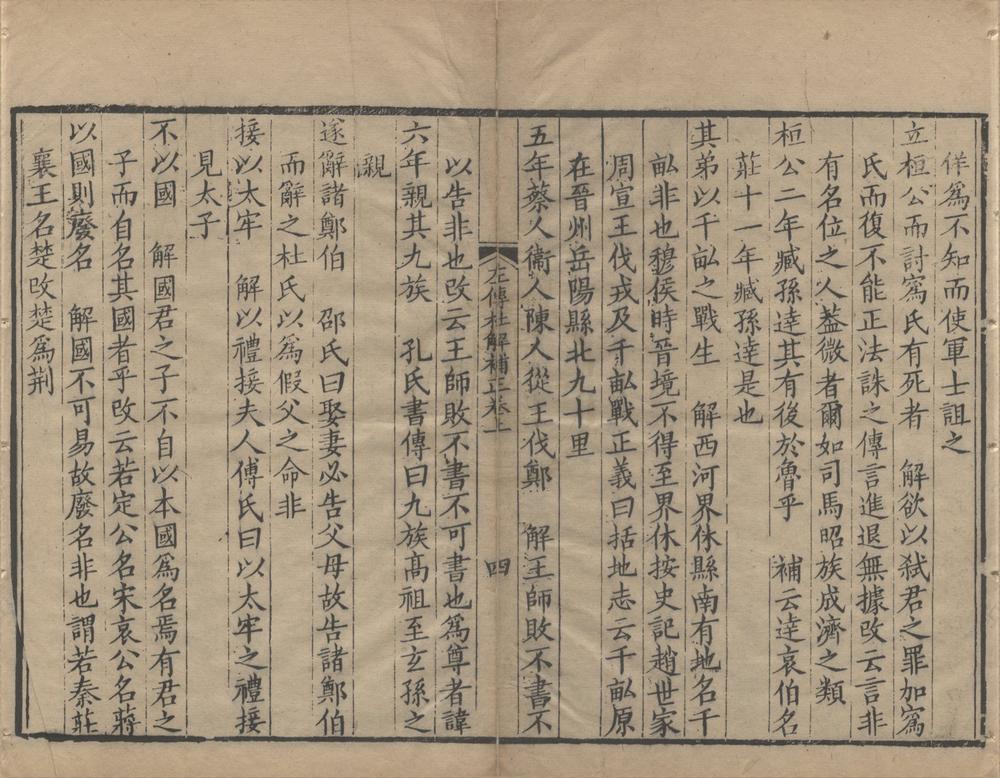 佯爲不知而使軍士詛之
立桓公而討寪氏有死者　解欲以弒君之罪加寪
氏而復不能正法誅之傳言進退無據改云言非
有名位之人葢微者爾如司馬昭族成濟之類
桓公二年臧孫達其有後於魯乎　補云達哀伯名
莊十一年臧孫達是也
其弟以千畝之戰生　解西河界休縣南有地名千
畝非也穆侯時晉境不得至界休按史記趙世家
周宣王伐戎及千畝戰正義曰括地志云千畝原
在晉州岳陽縣北九十里
五年蔡人衞人陳人從王伐鄭　解王師敗不書不
左傳杜解補正卷上　四
以告非也改云王師敗不書不可書也爲尊者諱
六年親其九族　孔氏書傳曰九族高祖至玄孫之
親
遂辭諸鄭伯　邵氏曰娶妻必告父母故告諸鄭伯
而辭之杜氏以爲假父之命非
接以太牢　解以禮接夫人傅氏曰以太牢之禮接
見太子
不以國　解國君之子不自以本國爲名焉有君之
子而自名其國者乎改云若定公名宋哀公名蔣
以國則廢名　解國不可易故廢名非也謂若秦莊
襄王名楚改楚爲荆